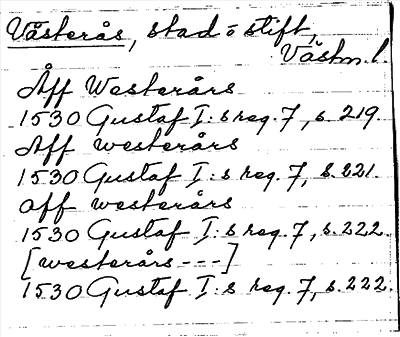 Västerås, stad o stift,
Västm. l.
Åff Westerårs
1530 Gustaf I:s reg. 7, s. 219.
Aff westerårs
1530 Gustaf I:s reg. 7, s. 221.
aff westerårs
1530 Gustaf I:s reg. 7, s. 222.
[westerårs ---]
1530 Gustaf I:s reg. 7, s. 222.